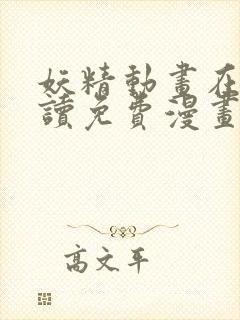 妖精動畫在
讀免費漫畫
高文平